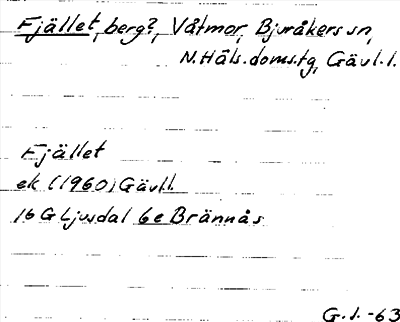 Fjället, berg?, Våtmor, Bjuråkers sn,
N. Häls. doms.tg, Gävl. l.
Fjället
ek (1960) Gävll.
16 G Ljusdal 6e Brännås
G. I. -63